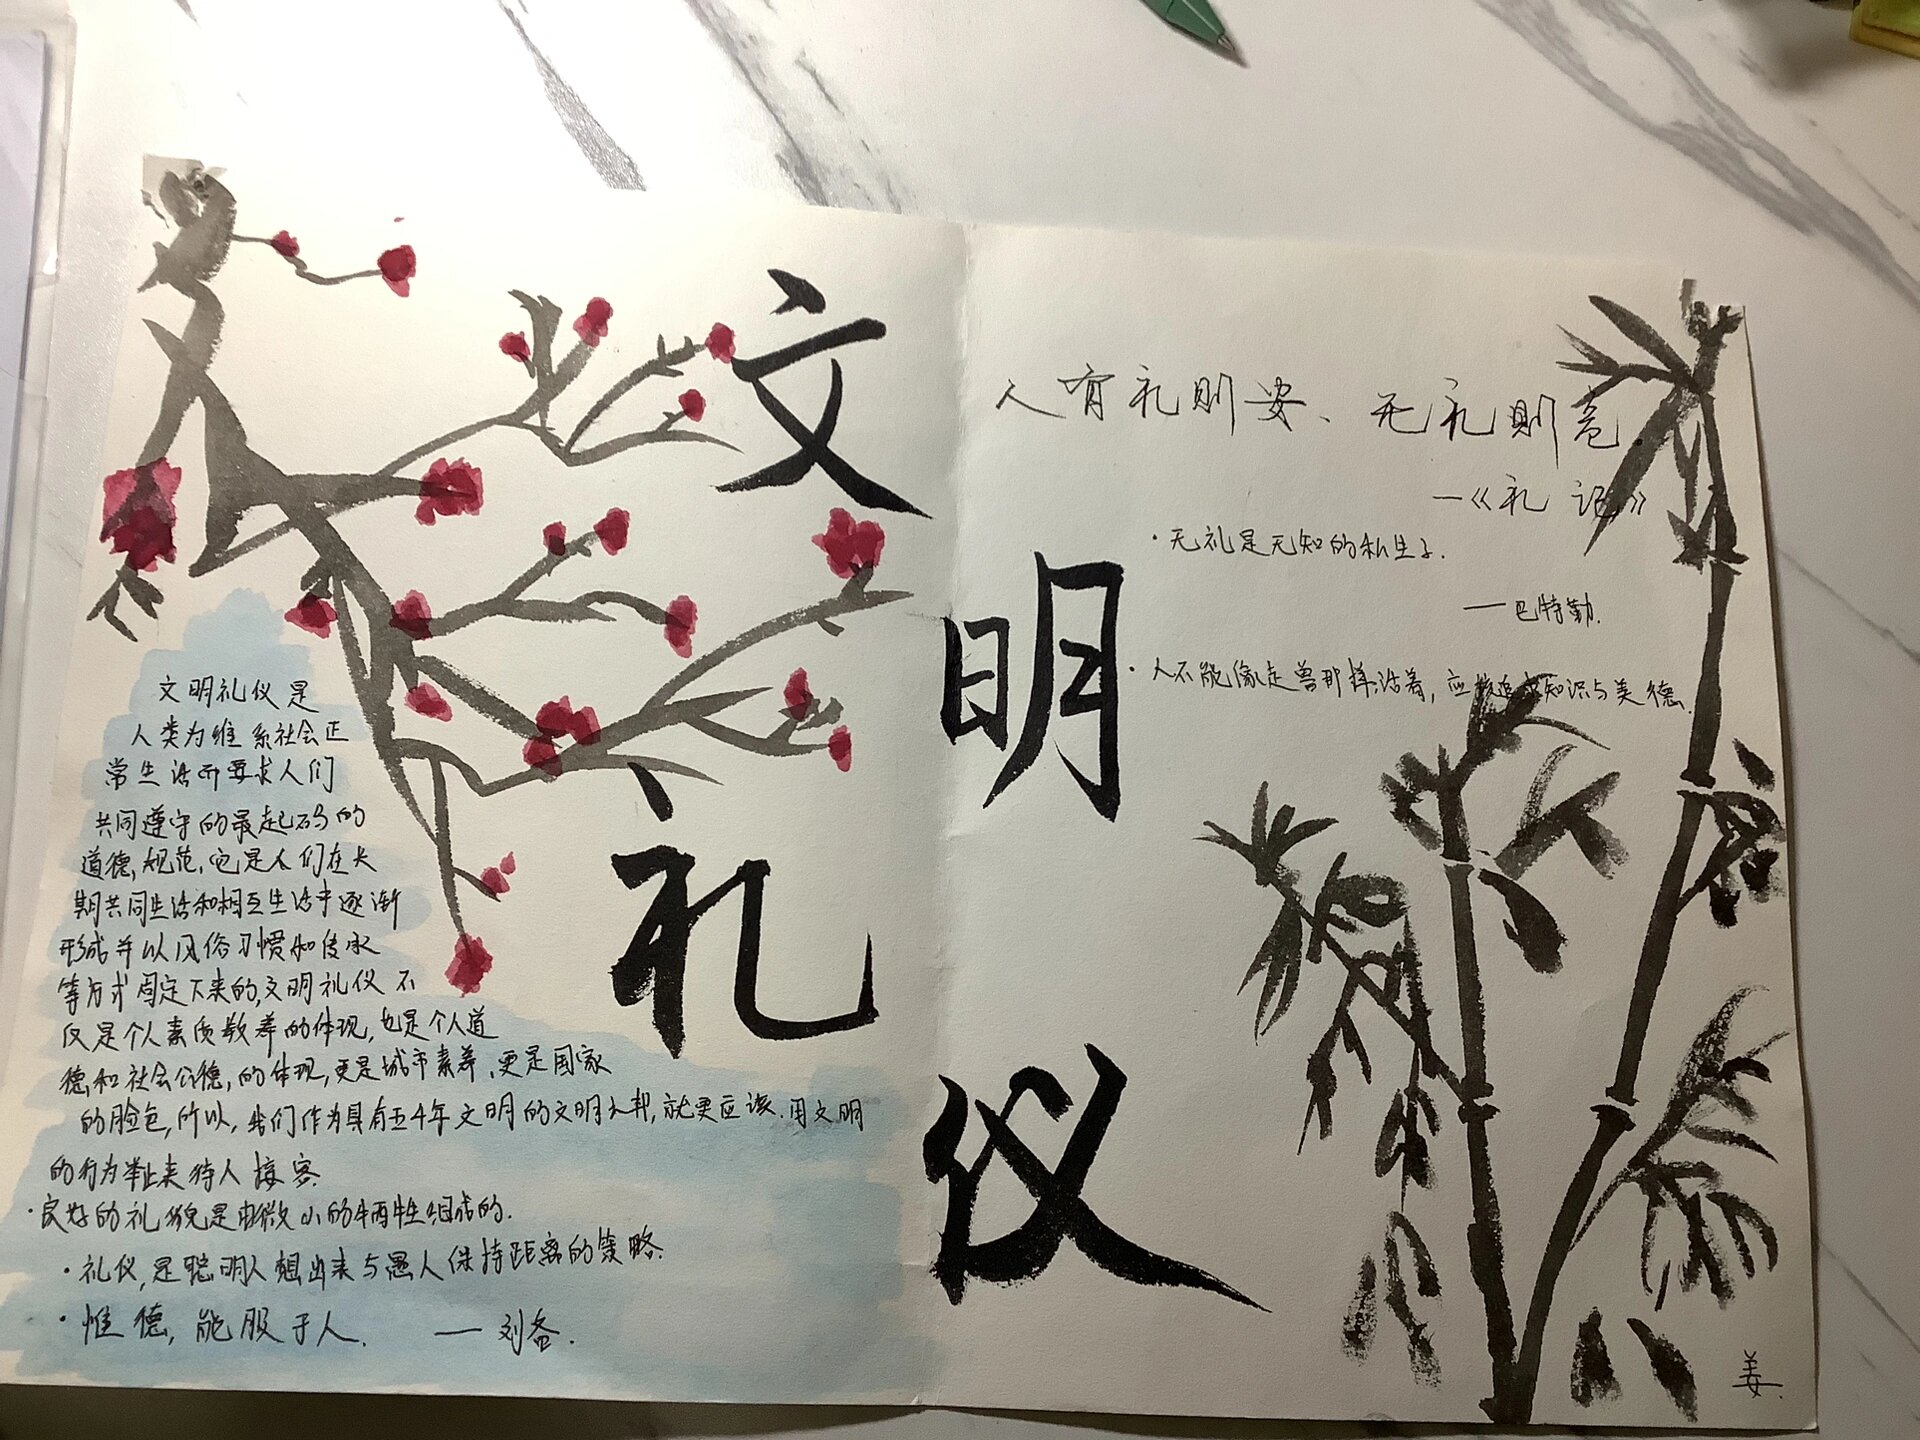 文明礼仪
文明礼仪是
人类为维系社会正
常生活而要求人们
共同遵守的最起码的
道德,规范,它是人们在长
期共同生活和相互生活中逐渐
形成并以风俗习惯和传承
等方式固定下来的,文明礼仪不
仅是个人素质教养的体现,也是个人道
德和社会公德,的体现,更是城市素养,更是国家
的脸色,所以,我们作为具有五千年文明的文明之邦,就更应该,用文明
的行为举止来待人接客
·良好的礼貌是由微小的牺牲组成的.
·礼仪,是聪明人想出来与愚人保持距离的策略.
·惟德,能服于人. ——刘备.
人有礼则安、无礼则危.
—《礼记》
·无礼是无知的私生子.
——巴特勒.
·人不能像走兽那样活着,应该追求知识与美德.
姜.